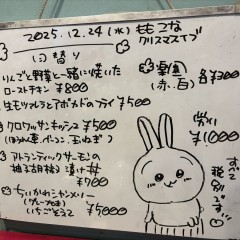 2025.12.24(水) ももこな
クリスマスイブ
日替り
りんごと野菜と一緒に焼いた
ローストチキン ¥800
生モツァレラとアボカドのフライ ¥500
クロワッサンキッシュ2 ¥500
(ほうれん草、ベーコン、玉ねぎ)
アトランティックサーモンの
柚子胡椒漬け丼
¥700
ちいかわシャンメリー
(グレープ
いちごとうふ ¥5000
各¥300
(赤・白)
¥1000
すべて
税別です